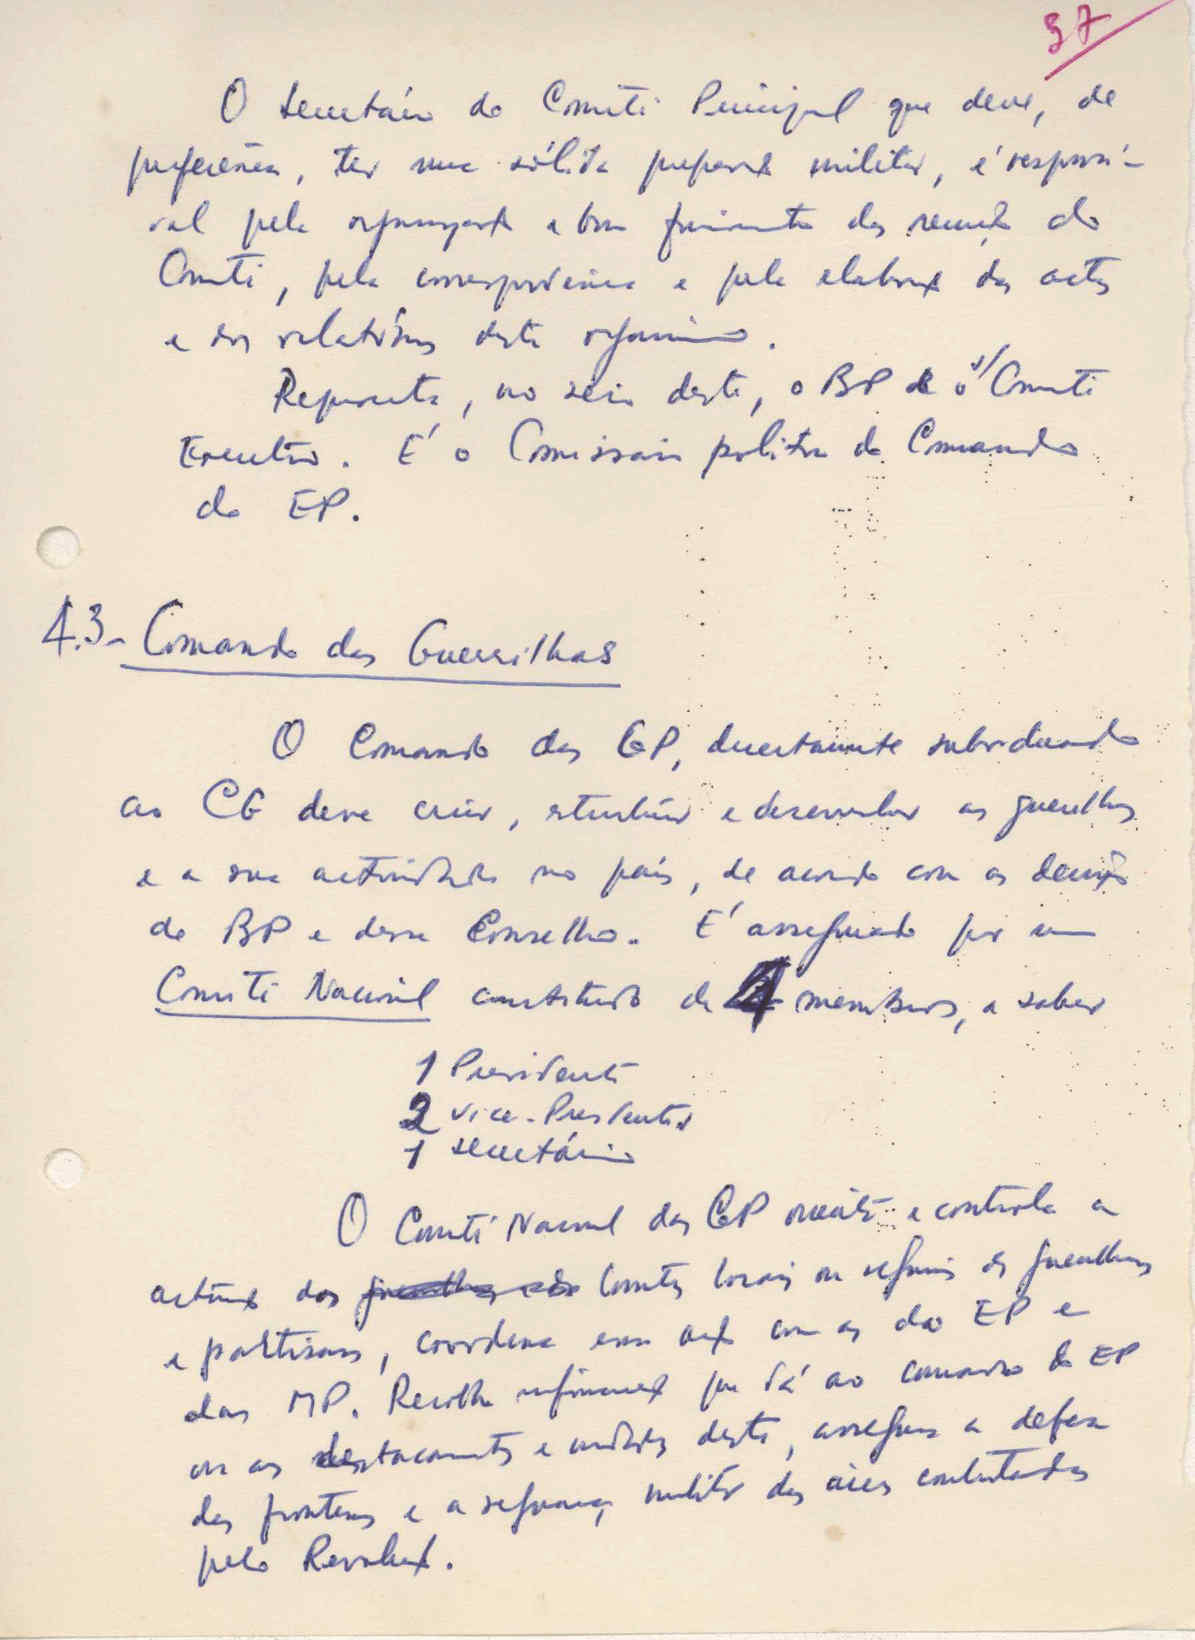 37
O Secretário do Comité Principal que deve, de
preferência, ter uma sólida preparação militar, é responsá-
vel pela organização e bom funcionamento das reuniões do
Comité, pela correspondência e pela elaboração das actas
e dos relatórios deste organismo.
Representa, no seio deste, o BP e o s/ Comité
Executivo. É o Comissário político do Comando
do EP.
4.3- Comando das Guerrilhas
O Comando das GP, directamente subordinado
ao CG deve criar, estruturar e desenvolver as guerrilhas
e a sua actividade no país, de acordo com as decisões
do BP e desse Conselho. É assegurado por um
Comité Nacional constituido de 4 membros, a saber
1 Presidente
2 Vice-Presidentes
1 Secretário
O Comité Nacional das GP orienta e controla a
actuação dos Comités locais ou regionais de guerrilhas
e partisans, coordena essa acção com as do EP e
das MP. Recolhe informações que dá ao comando do EP
ou aos destacamentos e unidades deste, assegura a defesa
das fronteiras e a segurança militar das áreas controladas
pela Revolução.